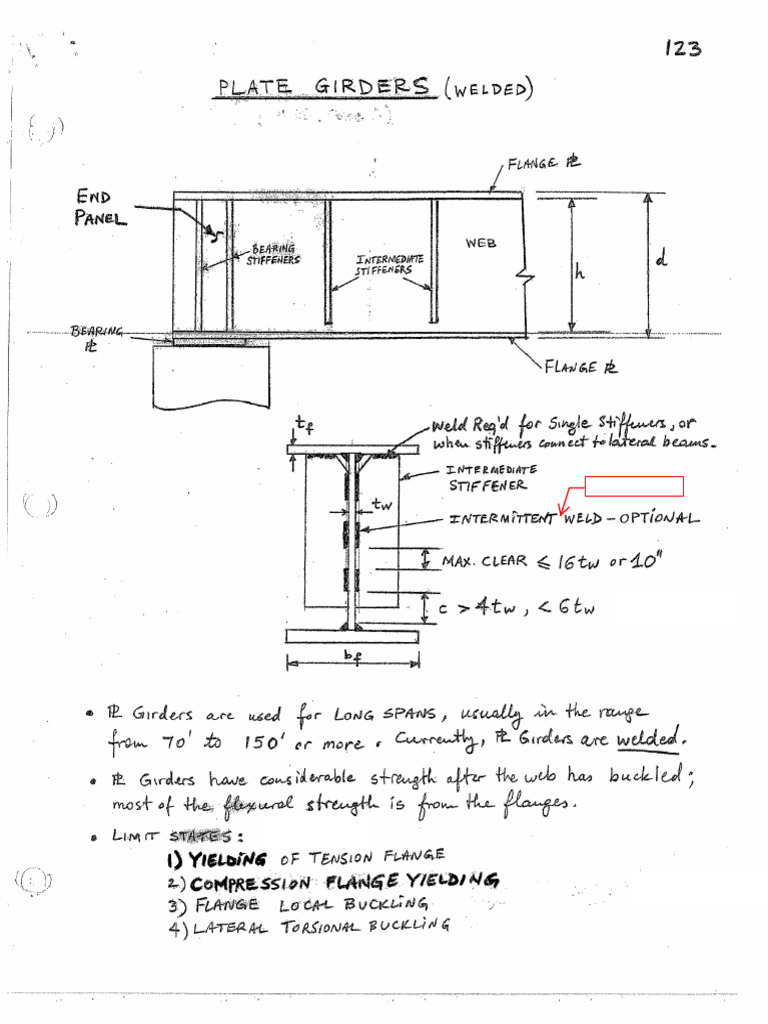 123
PLATE GIRDERS (WELDED)
FLANGE ℄
END
PANEL
BEARING
STIFFENERS
INTERMEDIATE
STIFFENERS
WEB
h
d
BEARING
℄
FLANGE ℄
tf
Weld Req'd for Single Stiffeners, or
when stiffeners connect to lateral beams.
INTERMEDIATE
STIFFENER
tw
INTERMITTENT WELD - OPTIONAL
MAX. CLEAR ≤ 16tw or 10"
c > 4tw, < 6tw
bf
• ℄ Girders are used for LONG SPANS, usually in the range
from 70' to 150' or more. Currently, ℄ Girders are welded.
• ℄ Girders have considerable strength after the web has buckled;
most of the flexural strength is from the flanges.
• LIMIT STATES:
1) YIELDING OF TENSION FLANGE
2) COMPRESSION FLANGE YIELDING
3) FLANGE LOCAL BUCKLING
4) LATERAL TORSIONAL BUCKLING